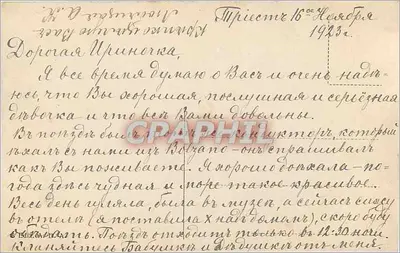 Крѣпко цѣлую Васъ
Любящая А.К.
Триестъ 16ое Ноября
1923 г.
Дорогая Ириночка,
Я все время думаю о Васъ и очень надѣ-
юсь, что Вы хорошая, послушная и серьёзная
дѣвочка и что всѣ Вами довольны.
Въ поѣздѣ былъ кондукторъ, который
ѣхалъ съ нами изъ Bolzano – онъ спрашивалъ
какъ Вы поживаете. Я хорошо доѣхала – по-
года здѣсь чудная и море такое красивое.
Весь день гуляла, была въ музеѣ, а сейчасъ сижу
въ отелѣ (я поставила X надъ домомъ), скоро буду
обѣдать. Поѣздъ отходитъ только въ 12-30 ночи.
Кланяйтесь Бабушкѣ и Дѣдушкѣ отъ меня.
GRAPHIT